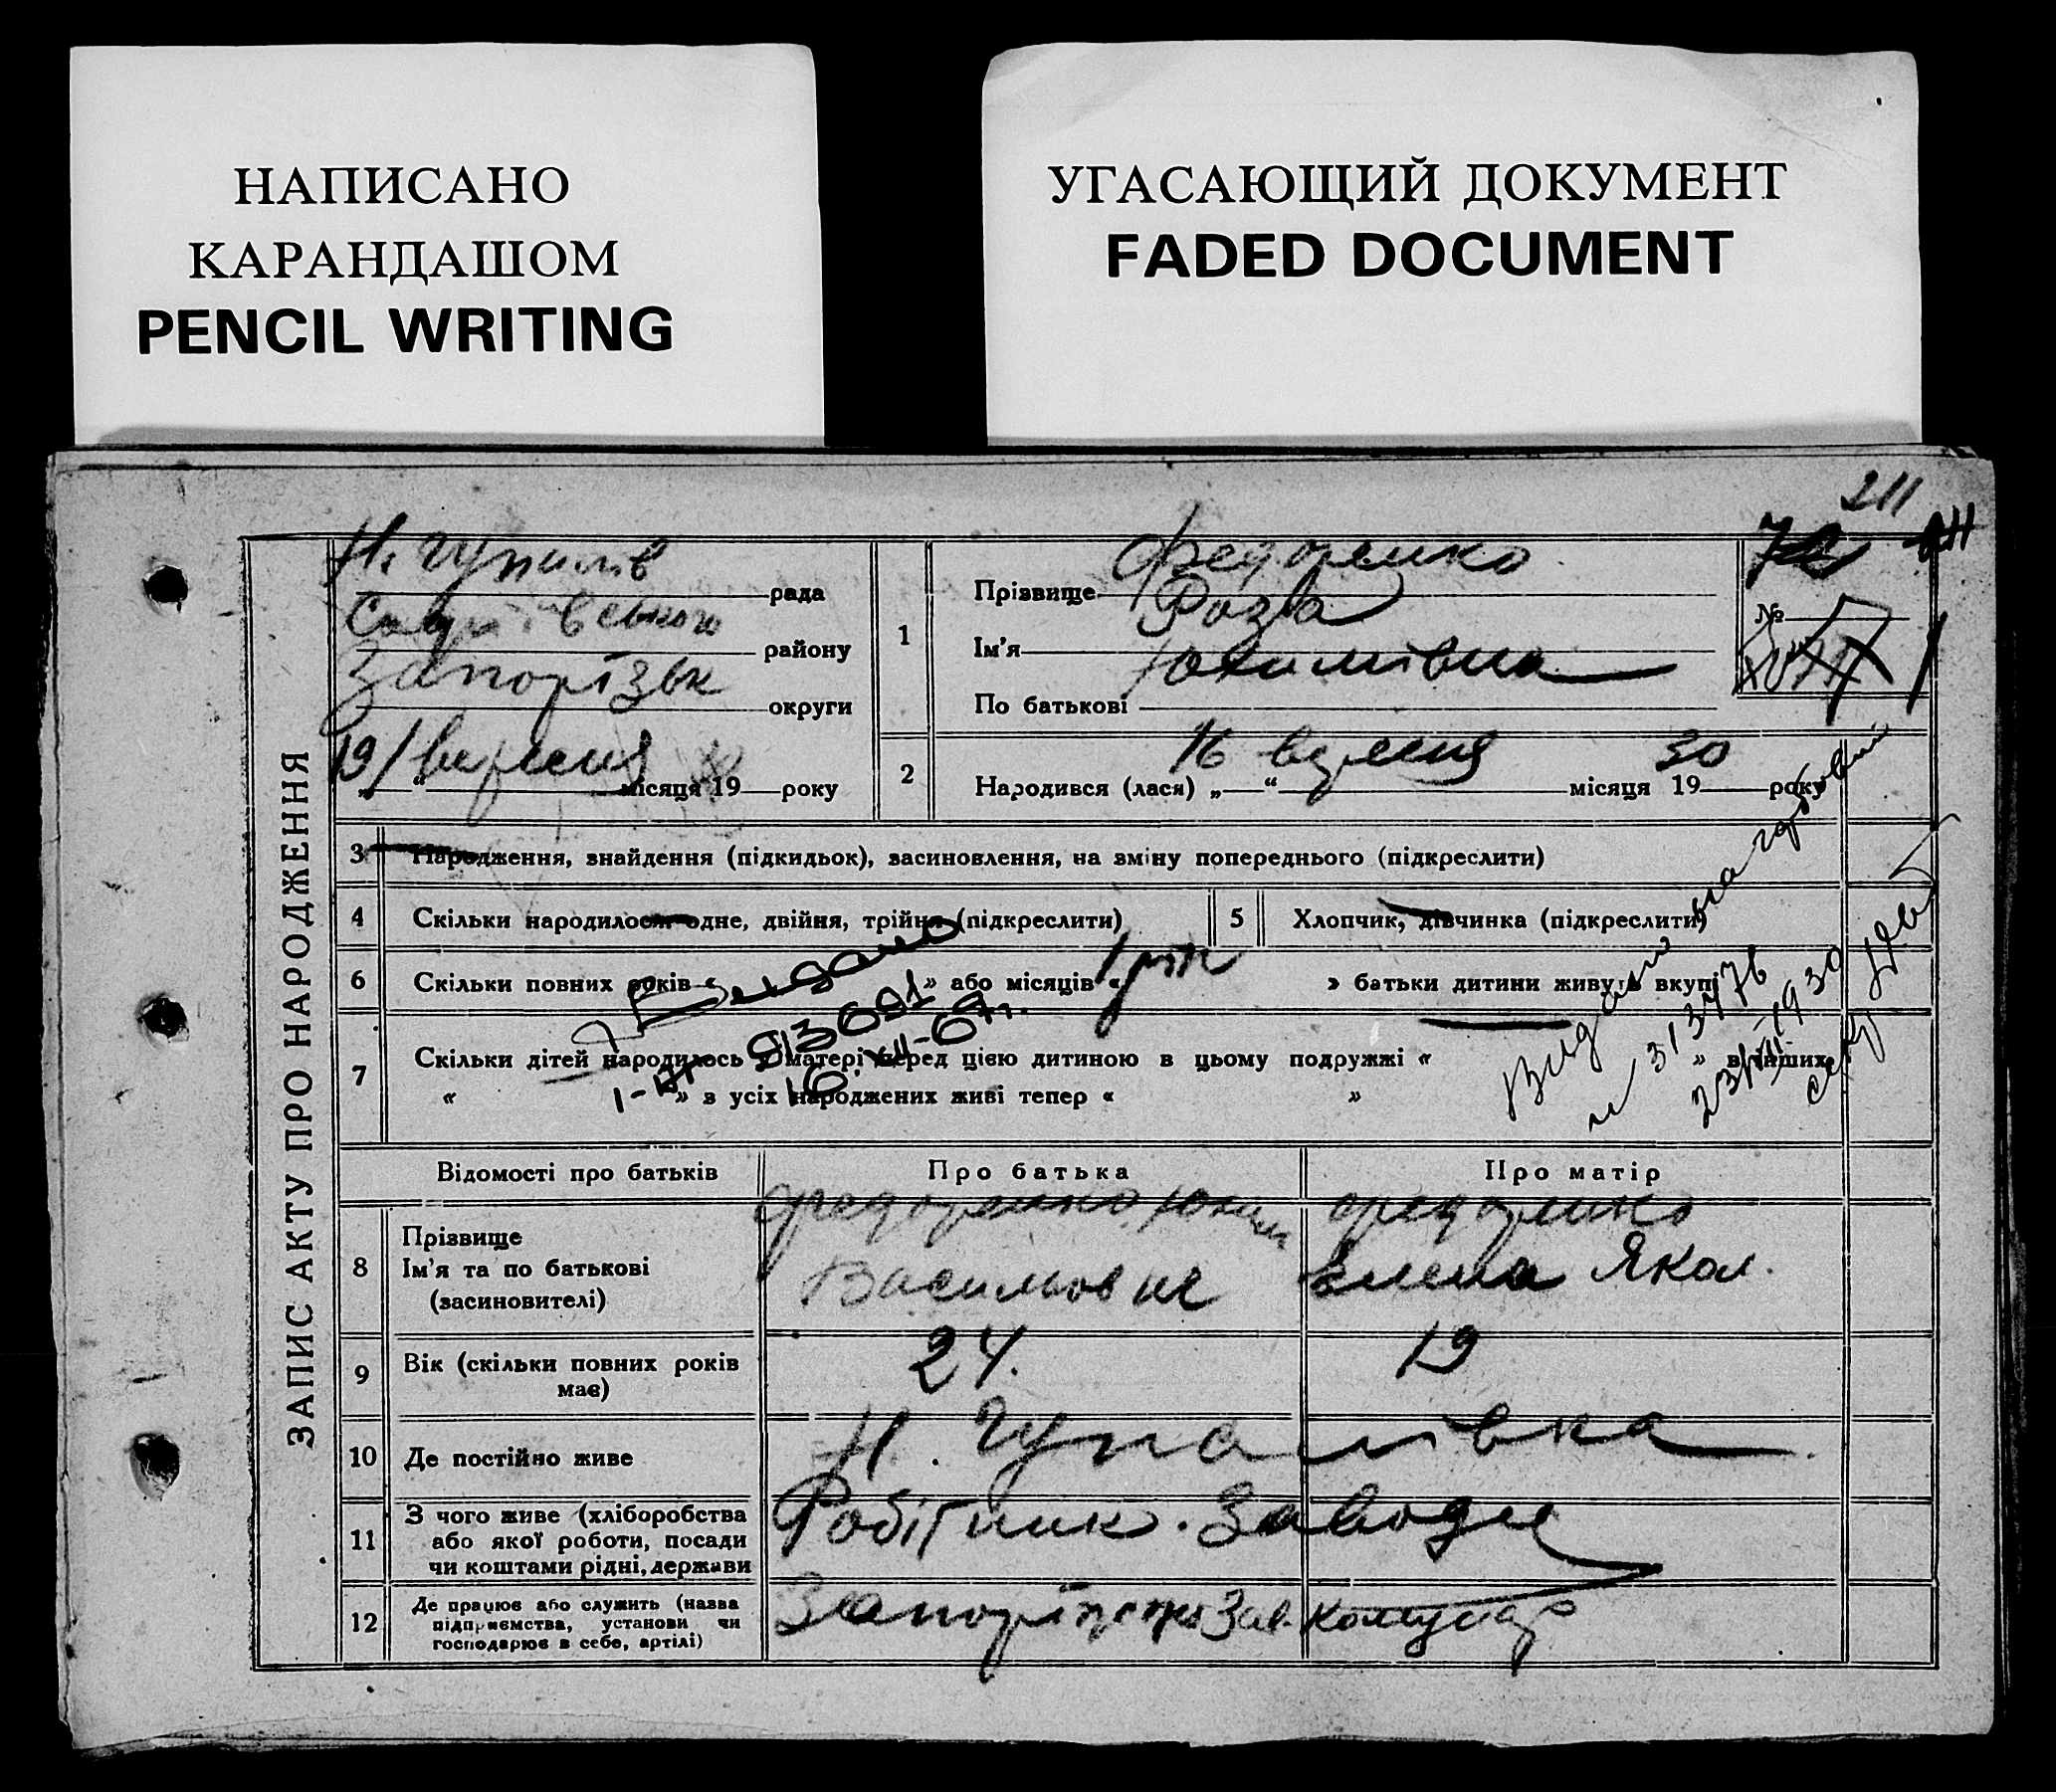 НАПИСАНО
КАРАНДАШОМ
PENCIL WRITING
УГАСАЮЩИЙ ДОКУМЕНТ
FADED DOCUMENT
211
ЗАПИС АКТУ ПРО НАРОДЖЕННЯ
рада
району
Запорізьк округи
19/вересня місяця 19 року
1
Прізвище Федоренко
Ім'я Роза
По батькові Юхимівна
№
2
Народився (лася) „16“ вересня місяця 1930 року
3 Народження, знайдення (підкидьок), засиновлення, на зміну попереднього (підкреслити)
4 Скільки народилося одне, двійня, трійня (підкреслити)
5 Хлопчик, дівчинка (підкреслити)
6 Скільки повних років « » або місяців « 1 рік » батьки дитини живуть вкупі
7 Скільки дітей народилось у матері перед цією дитиною в цьому подружжі « » в інших
« » з усіх народжених живі тепер « »
Видано
313776
Відомості про батьків
Про батька
Про матір
8 Прізвище
Ім'я та по батькові
(засиновителі)
Федоренко Юхим
Васильович
Федоренко
Елена Яков.
9 Вік (скільки повних років має)
24.
19
10 Де постійно живе
Н. Гупалівка
11 З чого живе (хліборобства
або якої роботи, посади
чи коштами рідні, держави
Робітник. Заводу
12 Де працює або служить (назва
підприємства, установи чи
господарює в себе, артілі)
Зав. Комунар